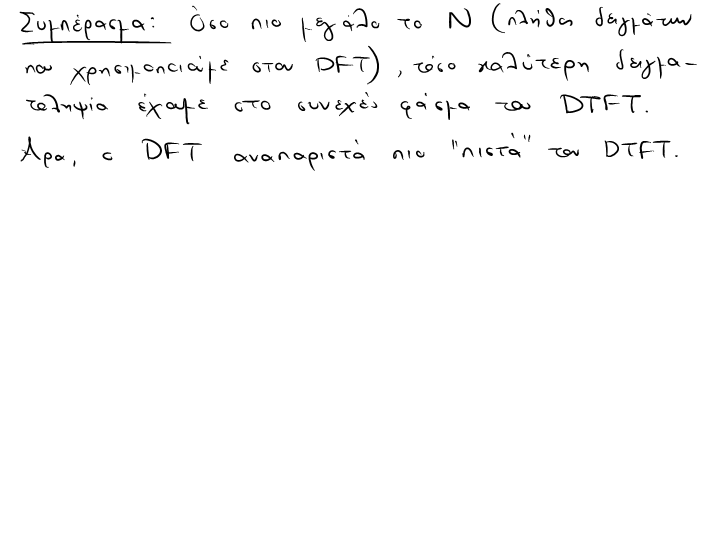 Συμπέρασμα: Όσο πιο μεγάλο το N (πλήθος δειγμάτων
που χρησιμοποιούμε στον DFT), τόσο καλύτερη δειγμα-
τοληψία έχουμε στο συνεχές φάσμα του DTFT.
Άρα, ο DFT αναπαριστά πιο "πιστά" τον DTFT.